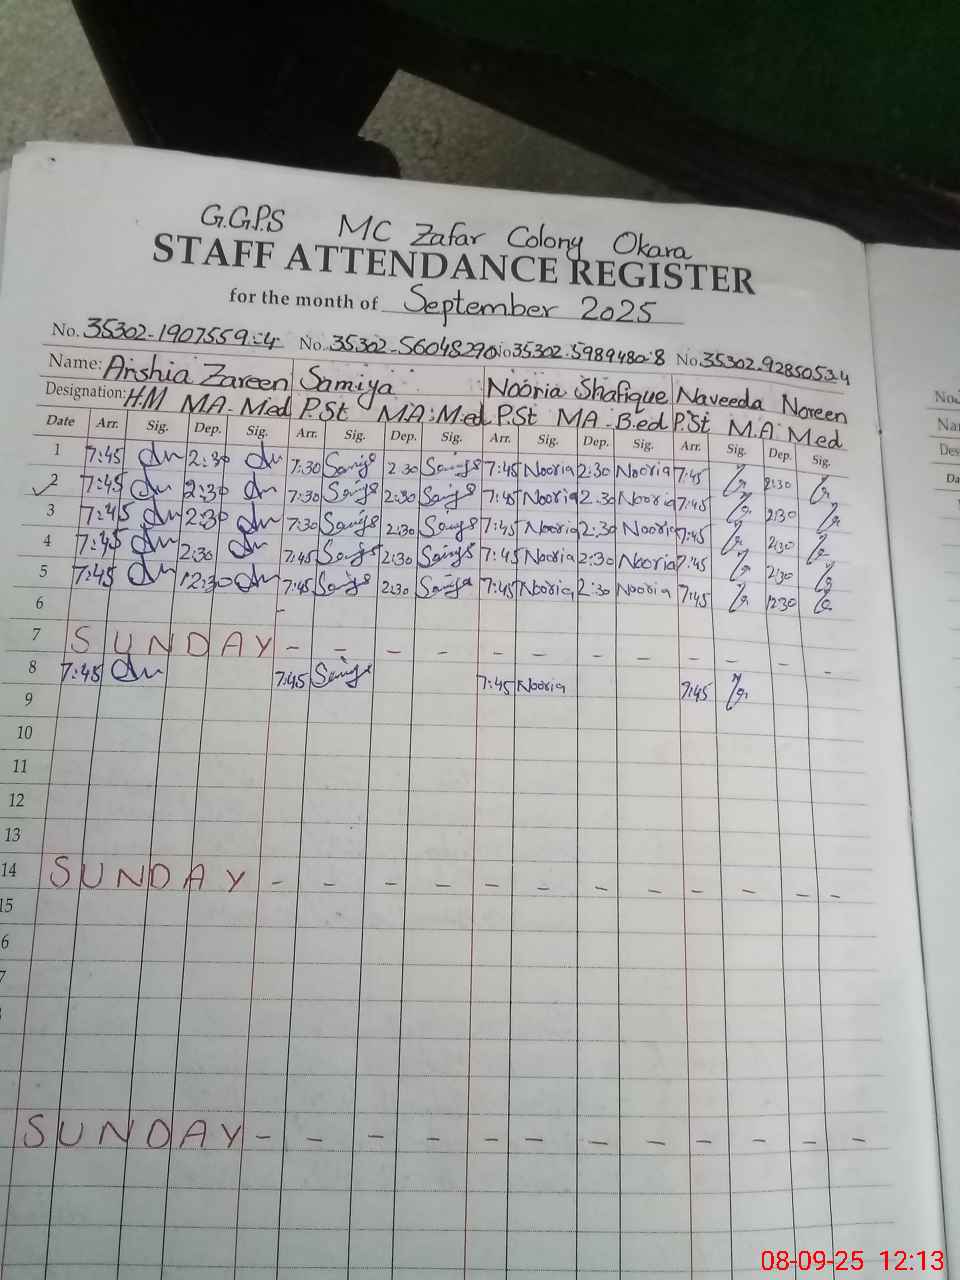 G.G.P.S MC Zafar Colony Okara
STAFF ATTENDANCE REGISTER
for the month of September 2025
No. 35302-1907559-4 No. 35302-56048290 No 35302-5989480-8 No. 35302-9285053-4
Name: Arshia Zareen Samiya Nooria Shafique Naveeda Noreen
Designation: H.M M.A-Med P.St M.A.Med P.St MA-B.ed P.St M.A Med
Date Arr. Sig. Dep. Sig. Arr. Sig. Dep. Sig. Arr. Sig. Dep. Sig. Arr. Sig. Dep. Sig.
1 7:45 2:30 7:30 2:30 7:45 Nooria 2:30 Nooria 7:45 2:30
2 7:45 2:30 7:30 2:30 7:45 Nooria 2:30 Nooria 7:45 2:30
3 7:45 2:30 7:30 2:30 7:45 Nooria 2:30 Nooria 7:45 2:30
4 7:45 2:30 7:45 2:30 7:45 Nooria 2:30 Nooria 7:45 2:30
5 7:45 12:30 7:45 2:30 7:45 Nooria 2:30 Nooria 7:45 12:30
6 -
7 SUNDAY - - - - - - - - - - - -
8 7:45 7:45 7:45 Nooria 7:45
9
10
11
12
13
14 SUNDAY - - - - - - - - - - - -
15
6
7
SUNDAY - - - - - - - - - - - -
08-09-25 12:13